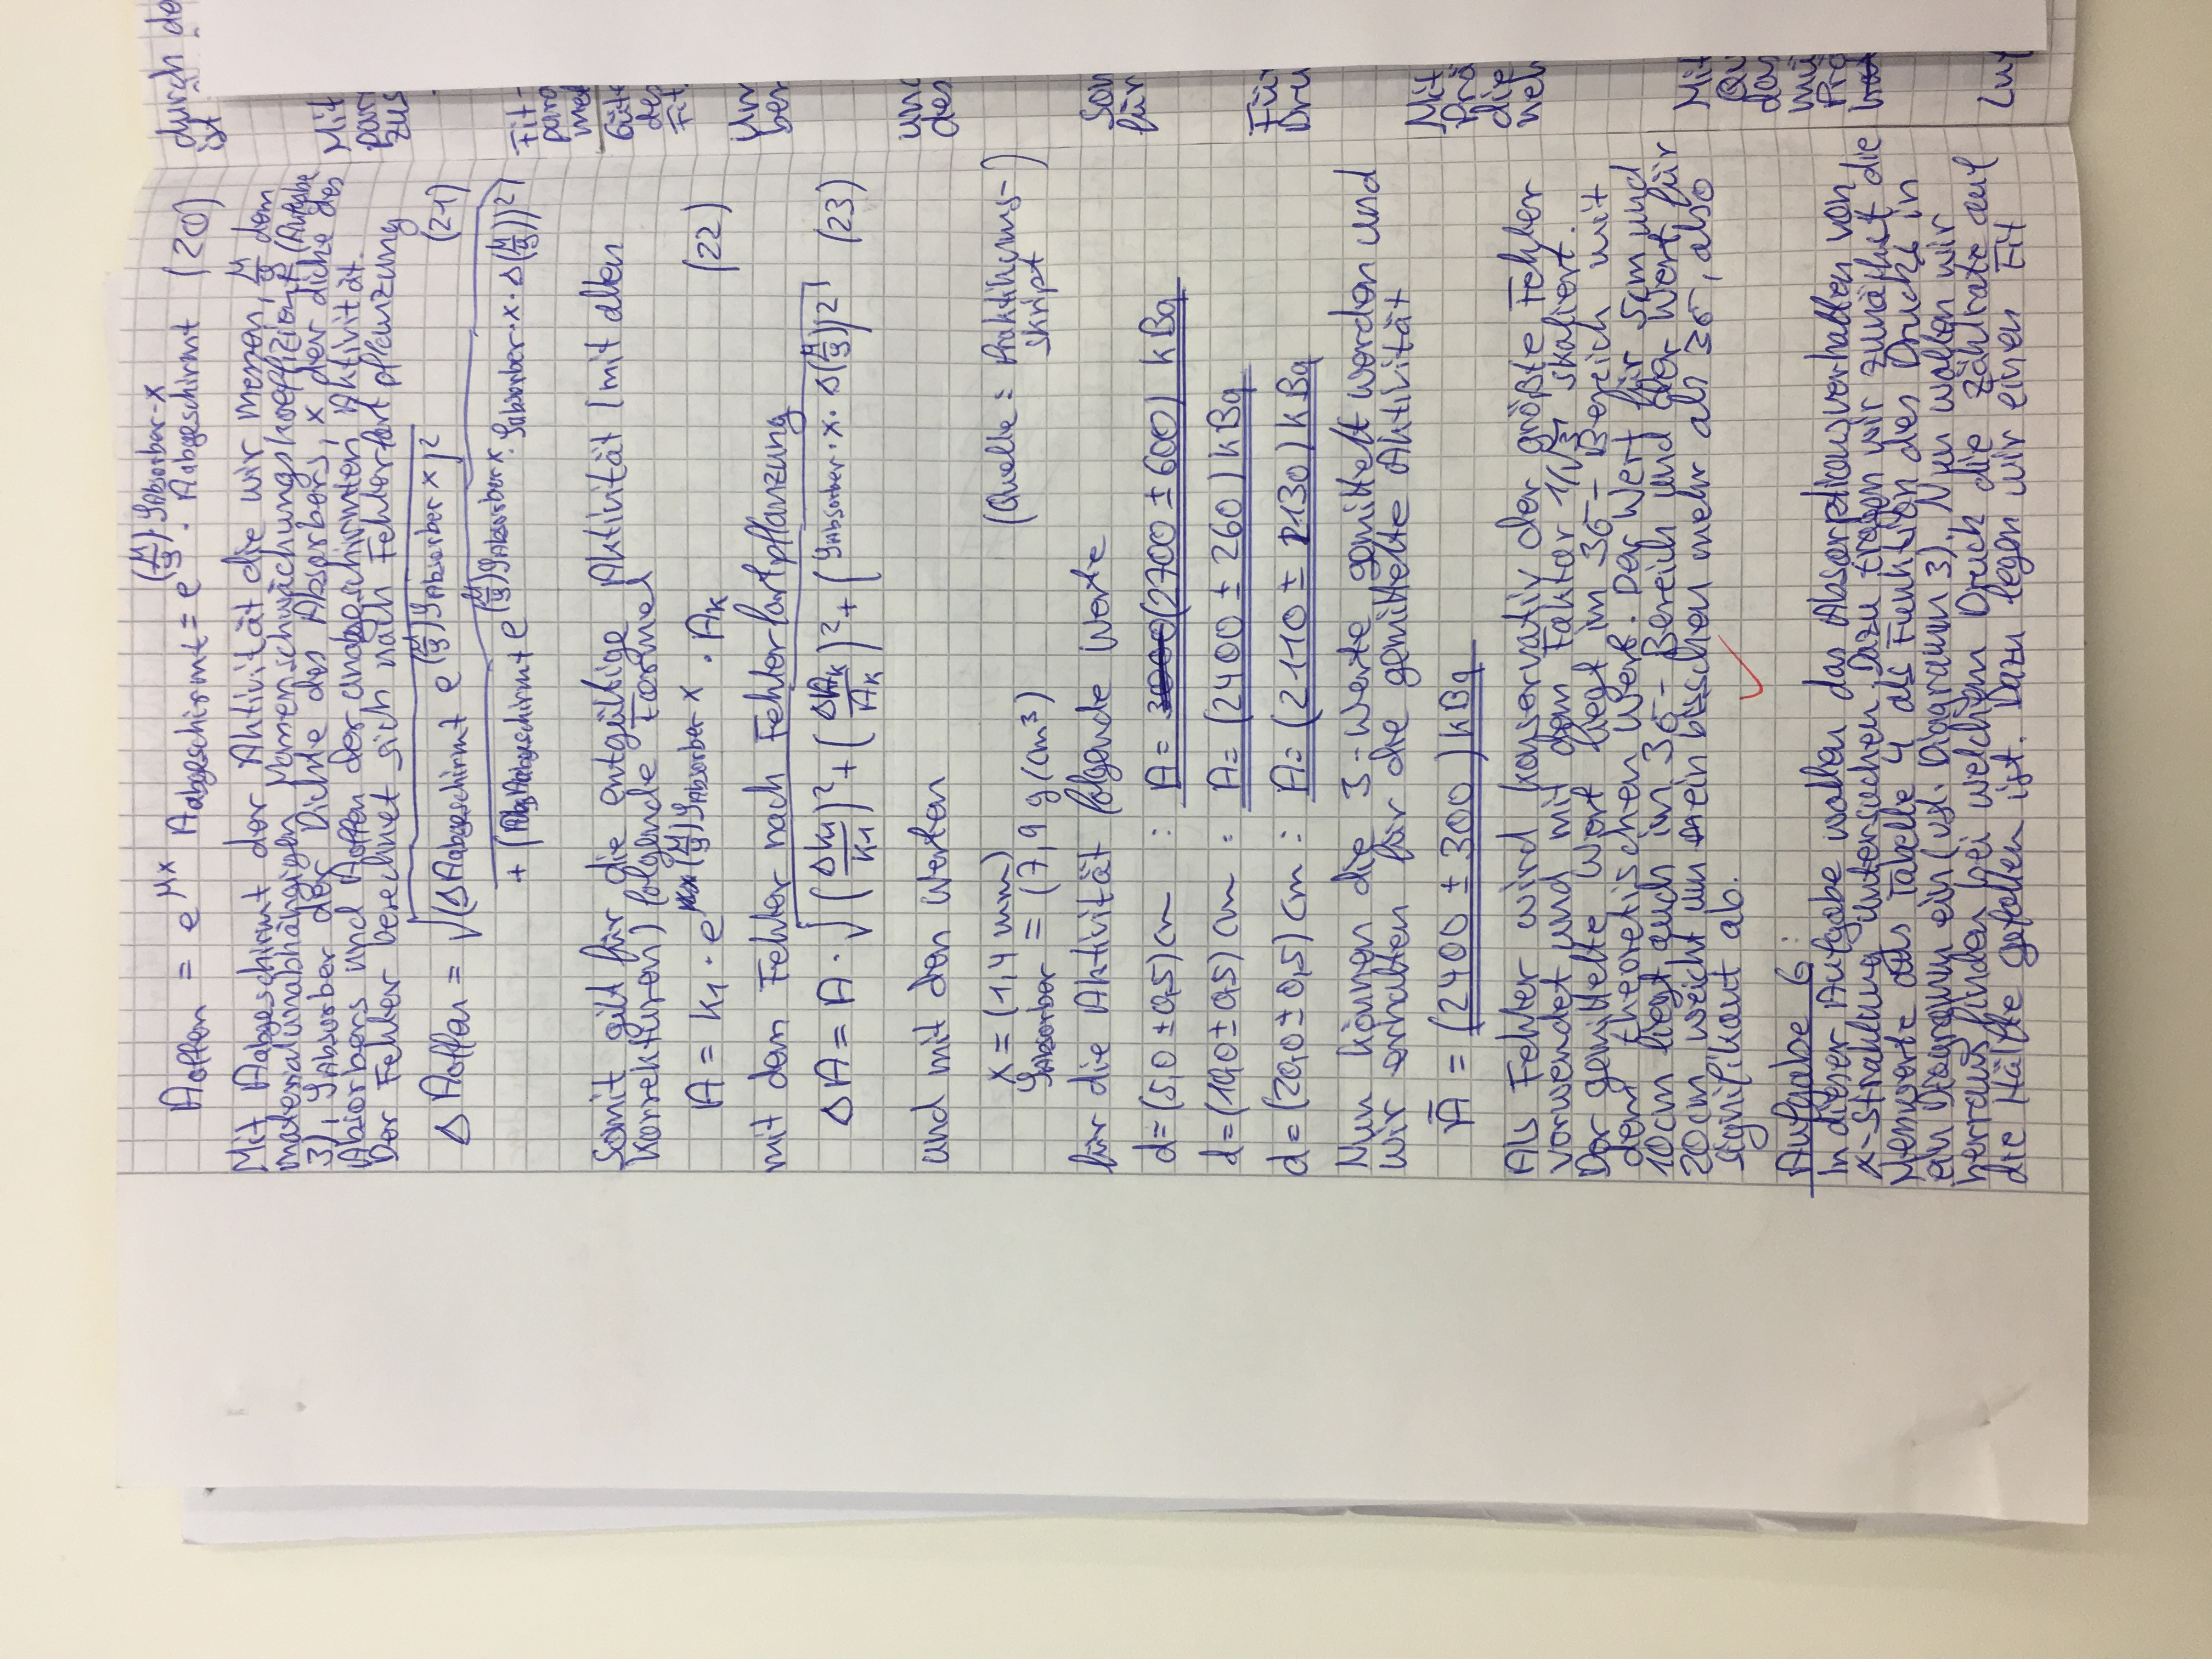 A_offen = e^{μx} A_abgeschirmt = e^{(μ/ρ)·ρ_Absorber·x} · A_abgeschirmt (20)
Mit A_abgeschirmt der Aktivität die wir messen, μ/ρ dem
materialunabhängigen Massenschwächungskoeffizient (Aufgabe
3), ρ_Absorber der Dichte des Absorbers, x der dicke des
Absorbers und A_offen der unabgeschirmten Aktivität.
Der Fehler berechnet sich nach Fehlerfortpflanzung
Δ A_offen = √((ΔA_abgeschirmt e^{(μ/ρ)ρ_Absorber x})² (21)
+ (A_abgeschirmt e^{(μ/ρ)ρ_Absorber x} · ρ_absorber · x · Δ(μ/ρ))²)
Somit gilt für die entgültige Aktivität (mit allen
Korrekturen) folgende Formel
A = k₁ · e^{(μ/ρ)ρ_Absorber x} · A_k (22)
mit dem Fehler nach Fehlerfortpflanzung
ΔA = A · √((Δk₁/k₁)² + (ΔA_k/A_k)² + (ρ_Absorber · x · Δ(μ/ρ))²) (23)
und mit den Werten
x = (1,4 mm) (Quelle: Praktikums-
ρ_Absorber = (7,9 g/cm³) skript)
für die Aktivität folgende Werte
d = (5,0 ± 0,5) cm : A = (2700 ± 600) kBq
d = (10,0 ± 0,5) cm : A = (2400 ± 260) kBq
d = (20,0 ± 0,5) cm : A = (2110 ± 130) kBq
Nun können die 3-Werte gemittelt werden und
wir erhalten für die gemittelte Aktivität
Ā = (2400 ± 300) kBq
Als Fehler wird konservativ der größte Fehler
verwendet und mit dem Faktor 1/√3 skaliert.
Der gemittelte Wert liegt im 3σ-Bereich mit
dem theoretischen Wert. Der Wert für 5cm und
10cm liegt auch im 3σ-Bereich und der Wert für
20cm weicht um ein bisschen mehr als 3σ, also
signifikant ab.
Aufgabe 6:
In dieser Aufgabe wollen das Absorptionsverhalten von
α-Strahlung untersuchen. Dazu tragen wir zunächst die
Messwerte aus Tabelle 4 als Funktion des Drucks in
ein Diagramm ein (vgl. Diagramm 3). Nun wollen wir
herrausfinden bei welchem Druck die Zählrate auf
die Hälfte gefallen ist. Dazu legen wir einen Fit
durch
ist
Mit
Fit-
und
des
Mit
die
Mit